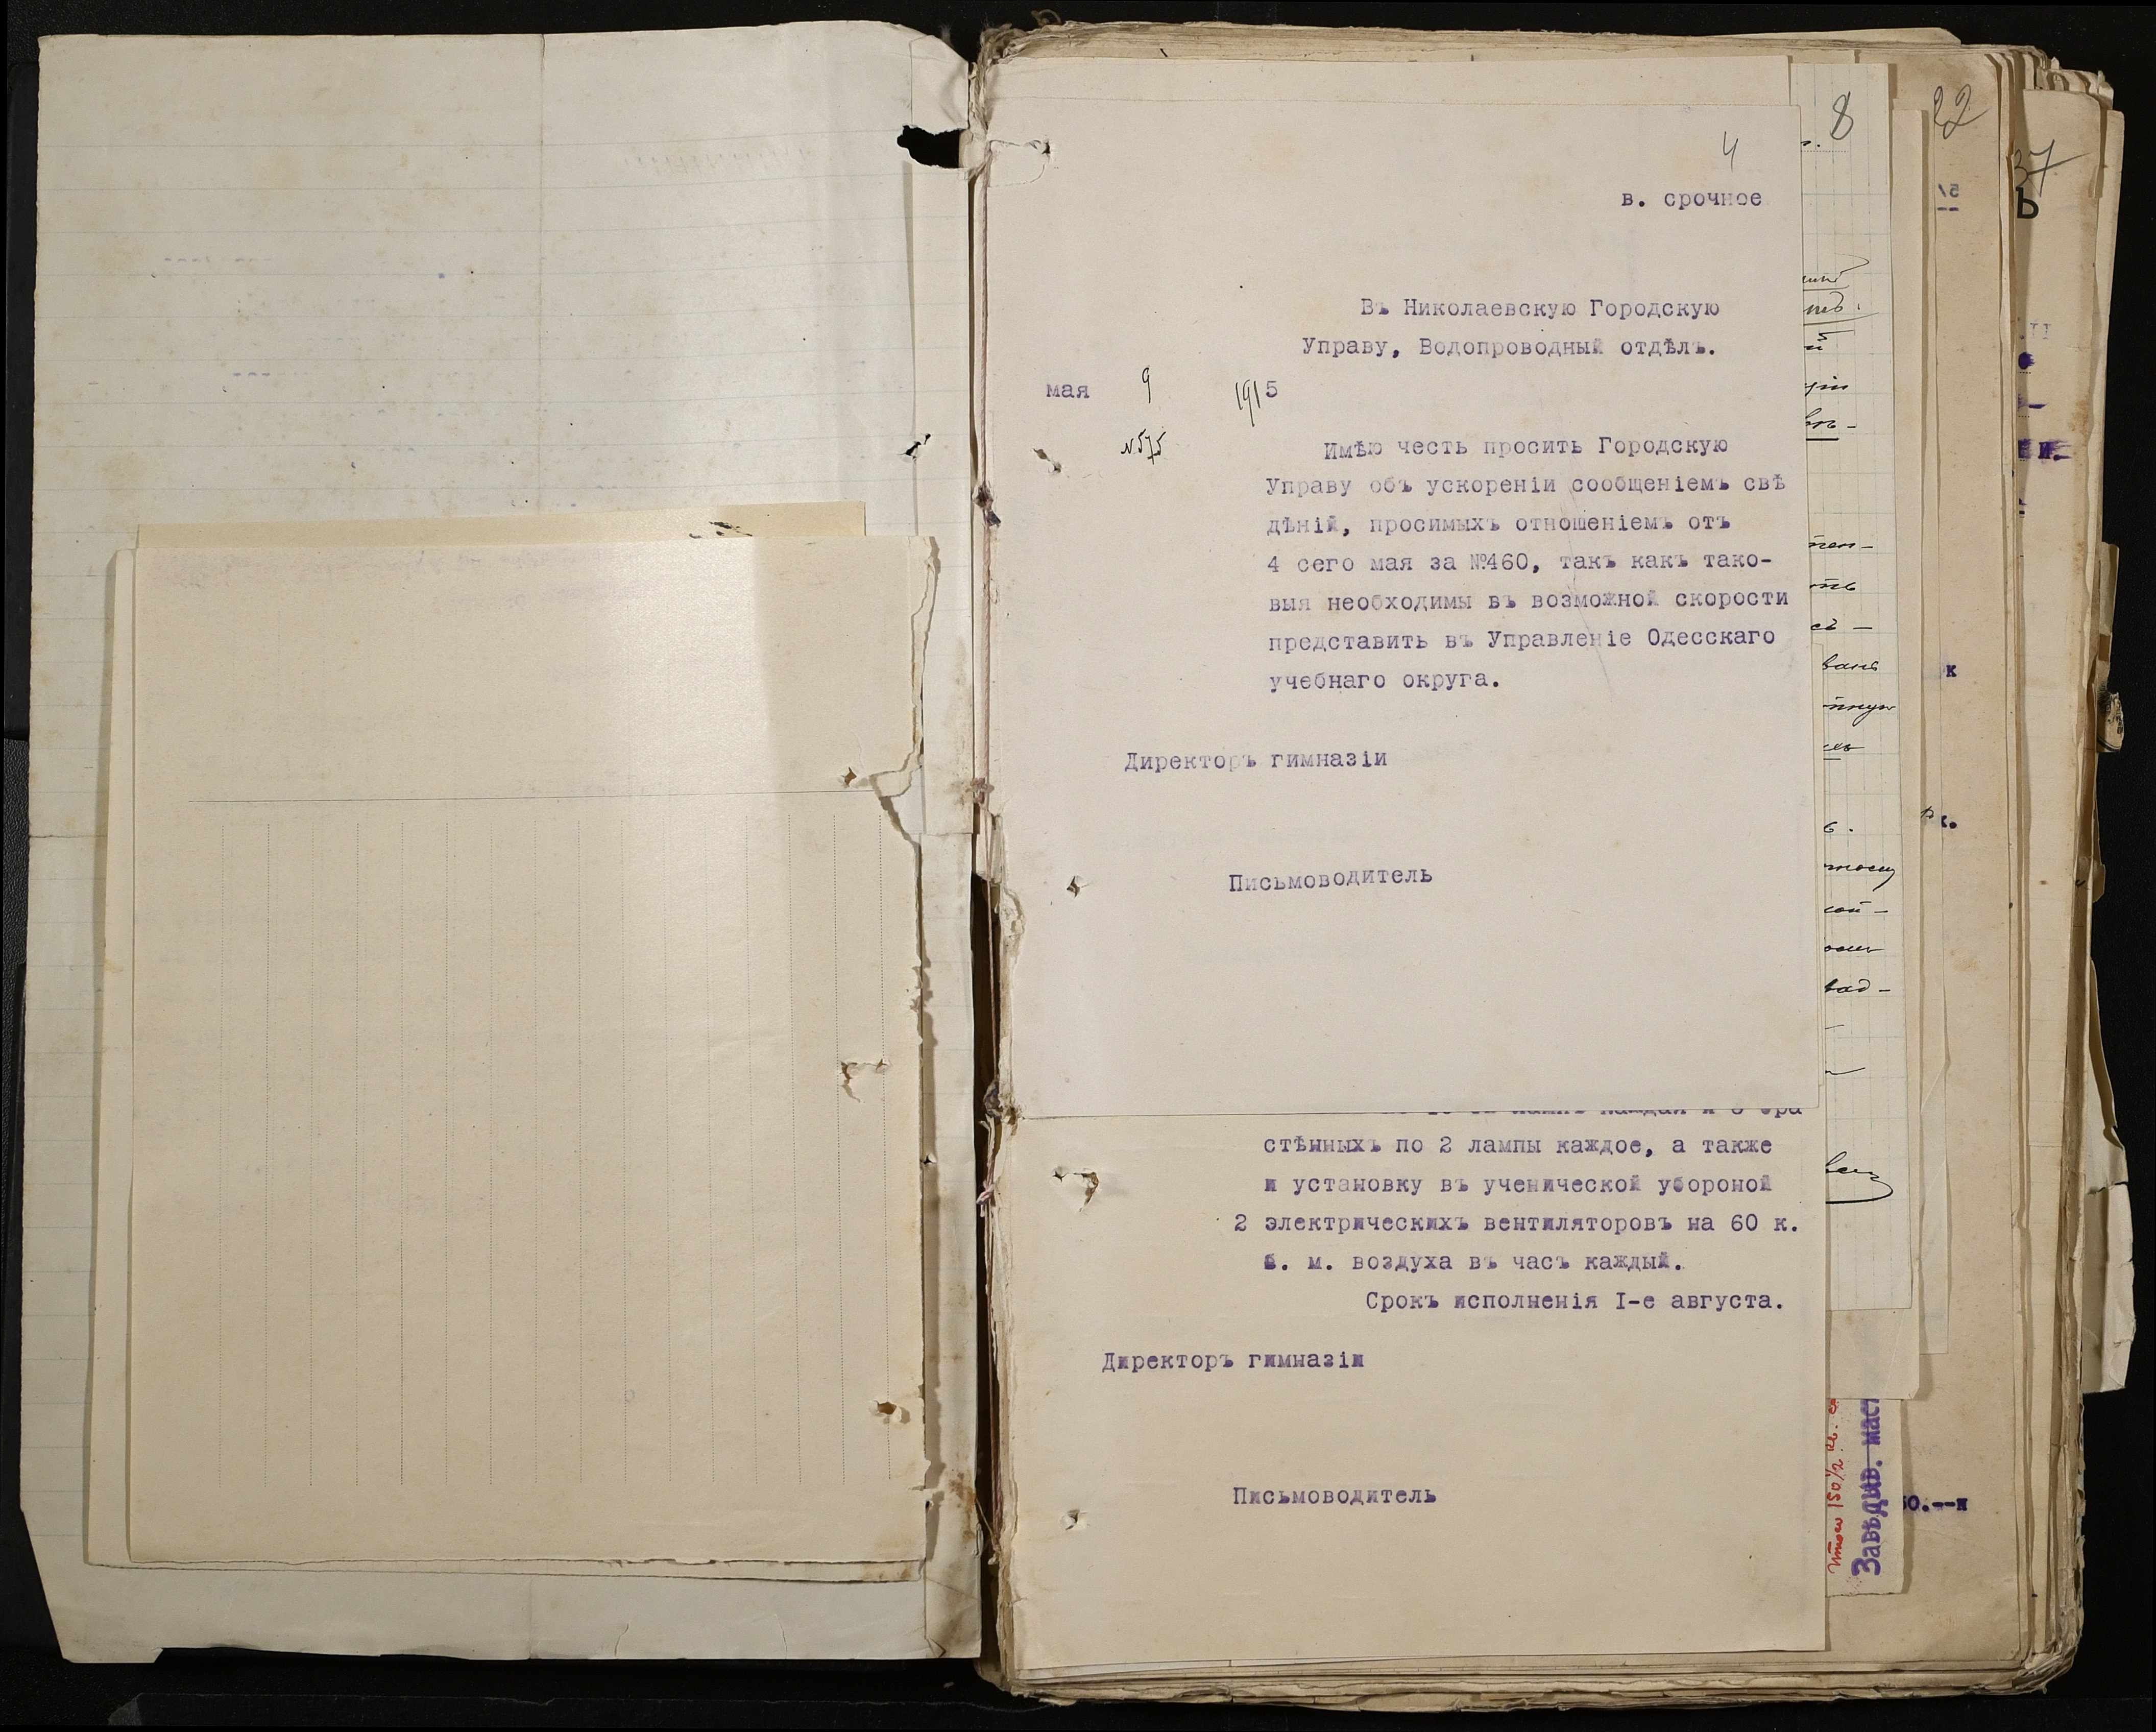 4
в. срочное
Въ Николаевскую Городскую
Управу, Водопроводный отдѣлъ.
мая 9 1915
№575
Имѣю честь просить Городскую
Управу объ ускореніи сообщеніемъ свѣ
дѣній, просимыхъ отношеніемъ отъ
4 сего мая за №460, такъ какъ тако-
выя необходимы въ возможной скорости
представить въ Управленіе Одесскаго
учебнаго округа.
Директоръ гимназіи
Письмоводитель
стѣнныхъ по 2 лампы каждое, а также
и установку въ ученической убороной
2 электрическихъ вентиляторовъ на 60 к.
б. м. воздуха въ часъ каждый.
Срокъ исполненія I-е августа.
Директоръ гимназіи
Письмоводитель
8
22
37
Завѣдыв. маст